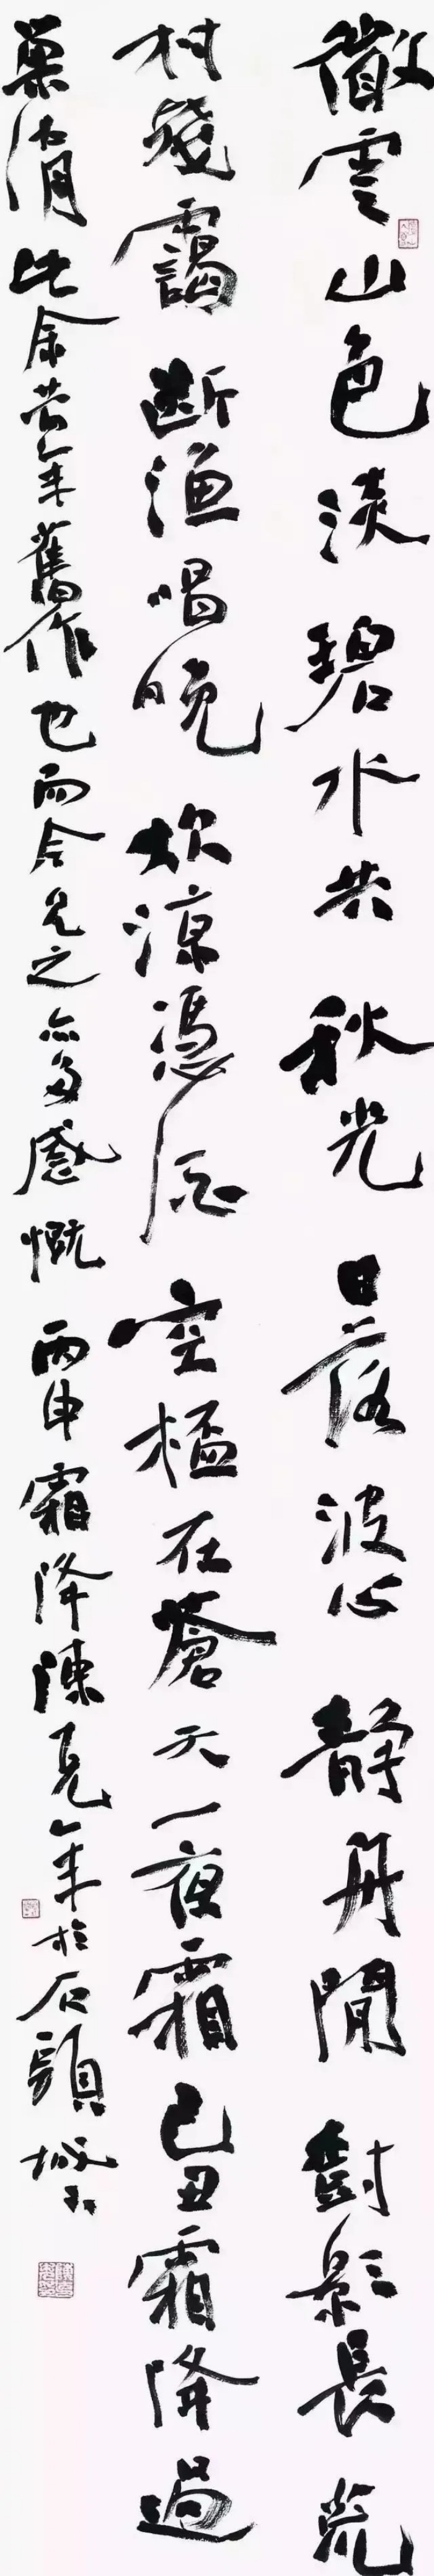 微雲山色淡碧水共秋光日落波心靜舟閒樹影長荒
村殘靄斷漁唱晚炊涼憑空檻在蒼天一夜霜己丑霜降過
巢湖此余昔年舊作也而今見之亦多感慨丙申霜降陳克年於石頭城下